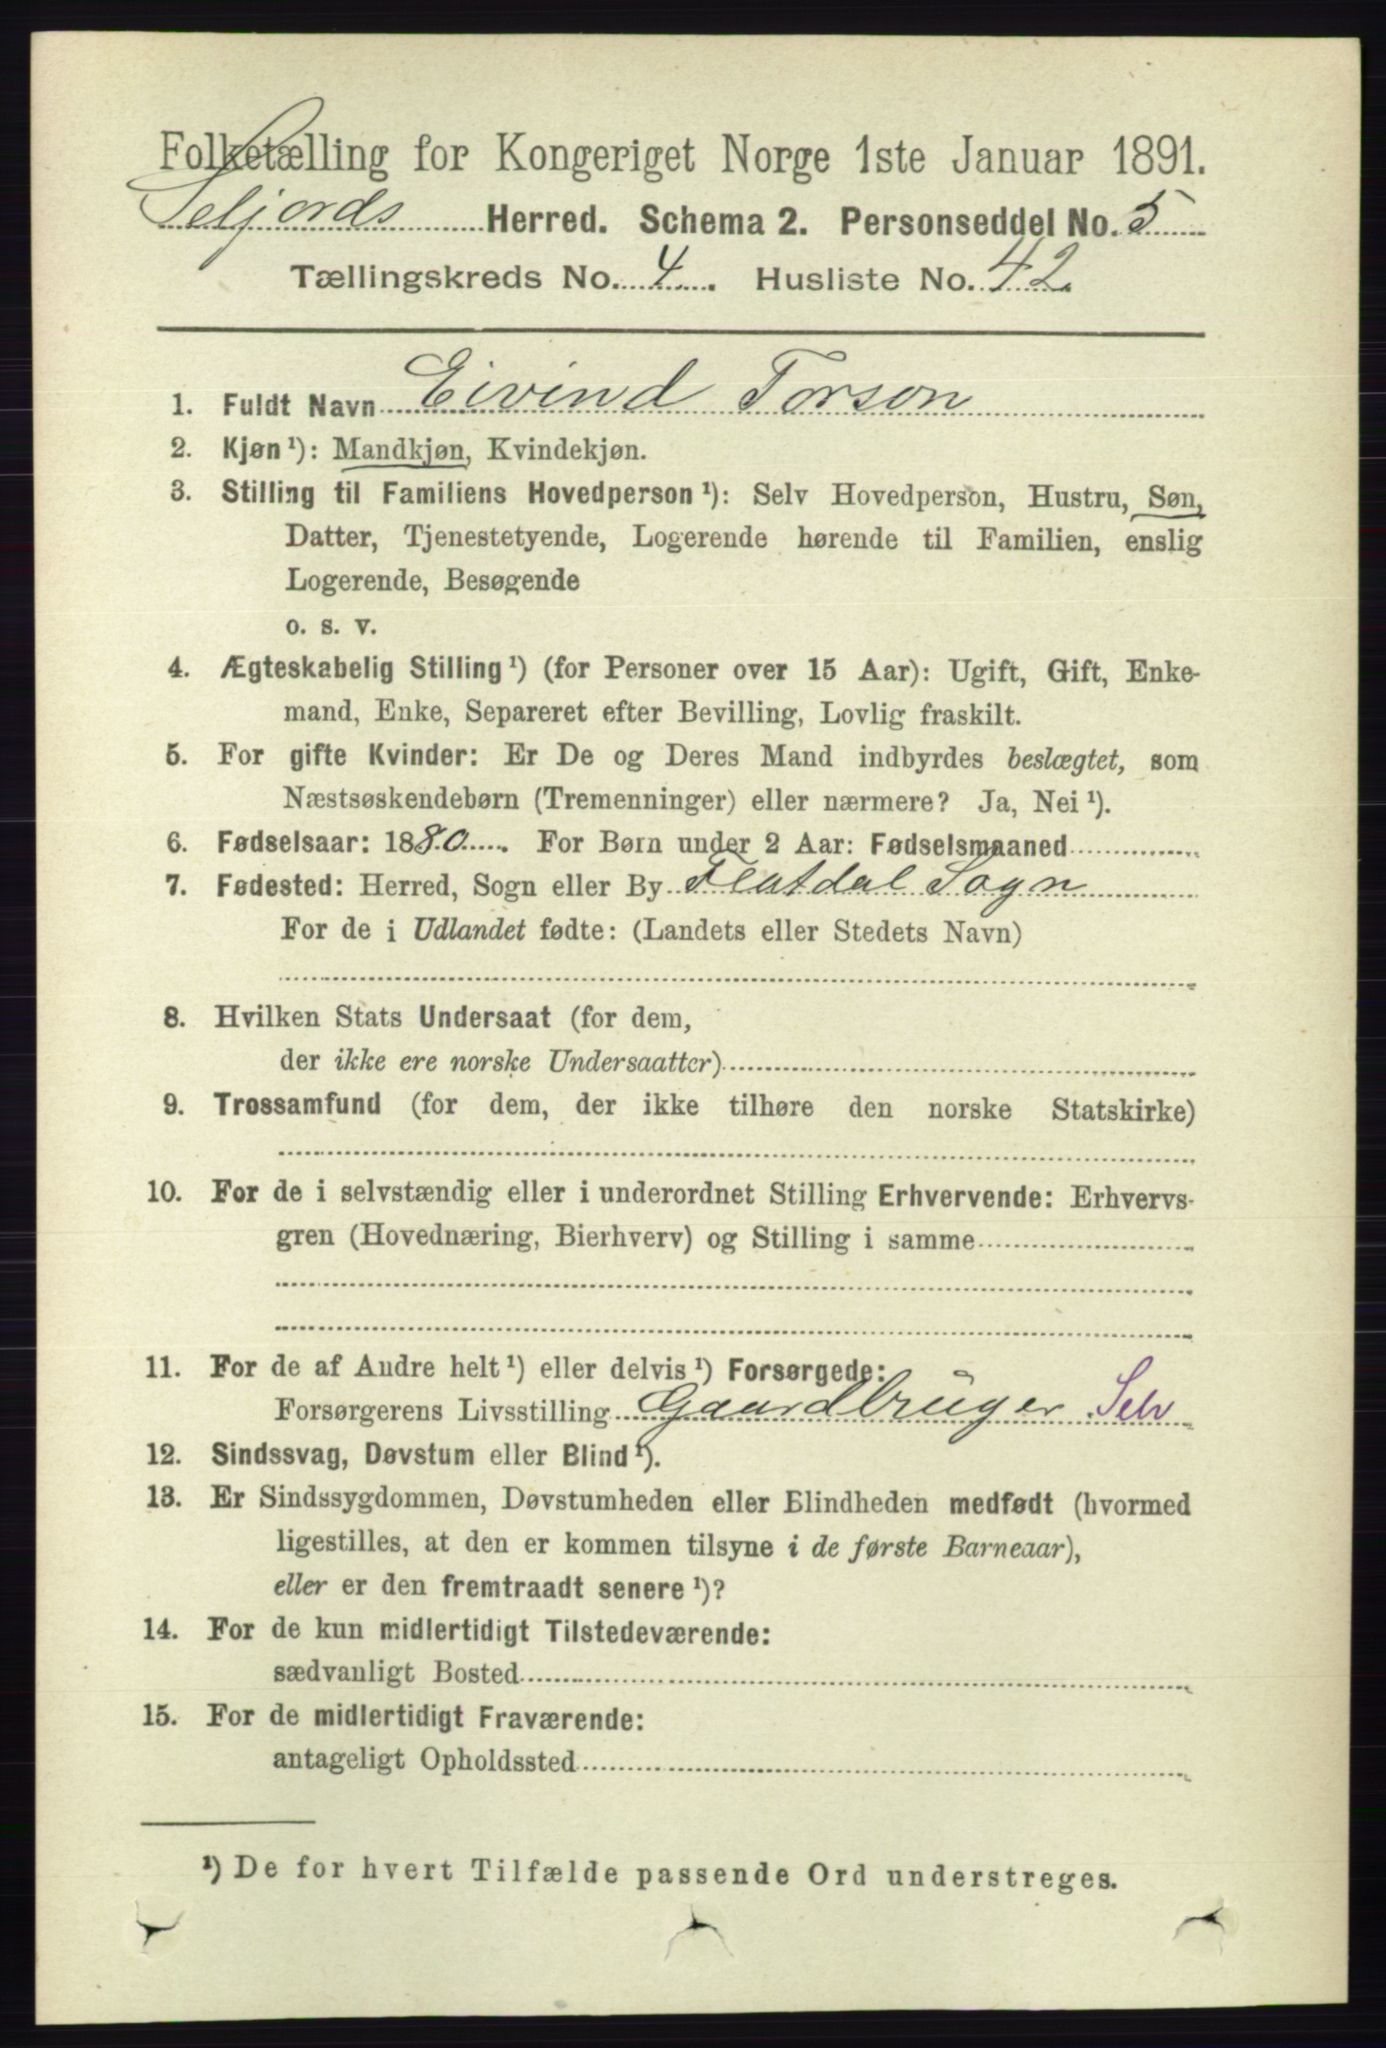 Folketælling for Kongeriget Norge 1ste Januar 1891.
Seljords Herred. Schema 2. Personseddel No. 5
Tællingskreds No. 4. Husliste No. 42
1. Fuldt Navn Eivind Torson
2. Kjøn¹): Mandkjøn, Kvindekjøn.
3. Stilling til Familiens Hovedperson¹): Selv Hovedperson, Hustru, Søn,
Datter, Tjenestetyende, Logerende hørende til Familien, enslig
Logerende, Besøgende
o. s. v.
4. Ægteskabelig Stilling¹) (for Personer over 15 Aar): Ugift, Gift, Enke-
mand, Enke, Separeret efter Bevilling, Lovlig fraskilt.
5. For gifte Kvinder: Er De og Deres Mand indbyrdes beslægtet, som
Næstsøskendebørn (Tremenninger) eller nærmere? Ja, Nei¹).
6. Fødselsaar: 1880. For Børn under 2 Aar: Fødselsmaaned
7. Fødested: Herred, Sogn eller By Flatdal Sogn
For de i Udlandet fødte: (Landets eller Stedets Navn)
8. Hvilken Stats Undersaat (for dem,
der ikke ere norske Undersaatter)
9. Trossamfund (for dem, der ikke tilhøre den norske Statskirke)
10. For de i selvstændig eller i underordnet Stilling Erhvervende: Erhvervs-
gren (Hovednæring, Bierhverv) og Stilling i samme
11. For de af Andre helt¹) eller delvis¹) Forsørgede:
Forsørgerens Livsstilling Gaardbruger Selv
12. Sindssvag, Døvstum eller Blind¹).
13. Er Sindssygdommen, Døvstumheden eller Blindheden medfødt (hvormed
ligestilles, at den er kommen tilsyne i de første Barneaar),
eller er den fremtraadt senere¹)?
14. For de kun midlertidigt Tilstedeværende:
sædvanligt Bosted
15. For de midlertidigt Fraværende:
antageligt Opholdssted
¹) De for hvert Tilfælde passende Ord understreges.